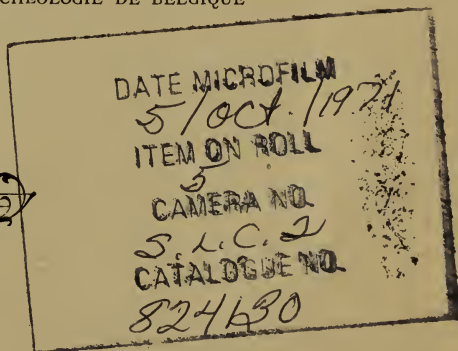 DE BELGIQUE
DATE MICROFILM
5/oct./1971
ITEM ON ROLL
5
CAMERA NO.
S.L.C. 2
CATALOGUE NO.